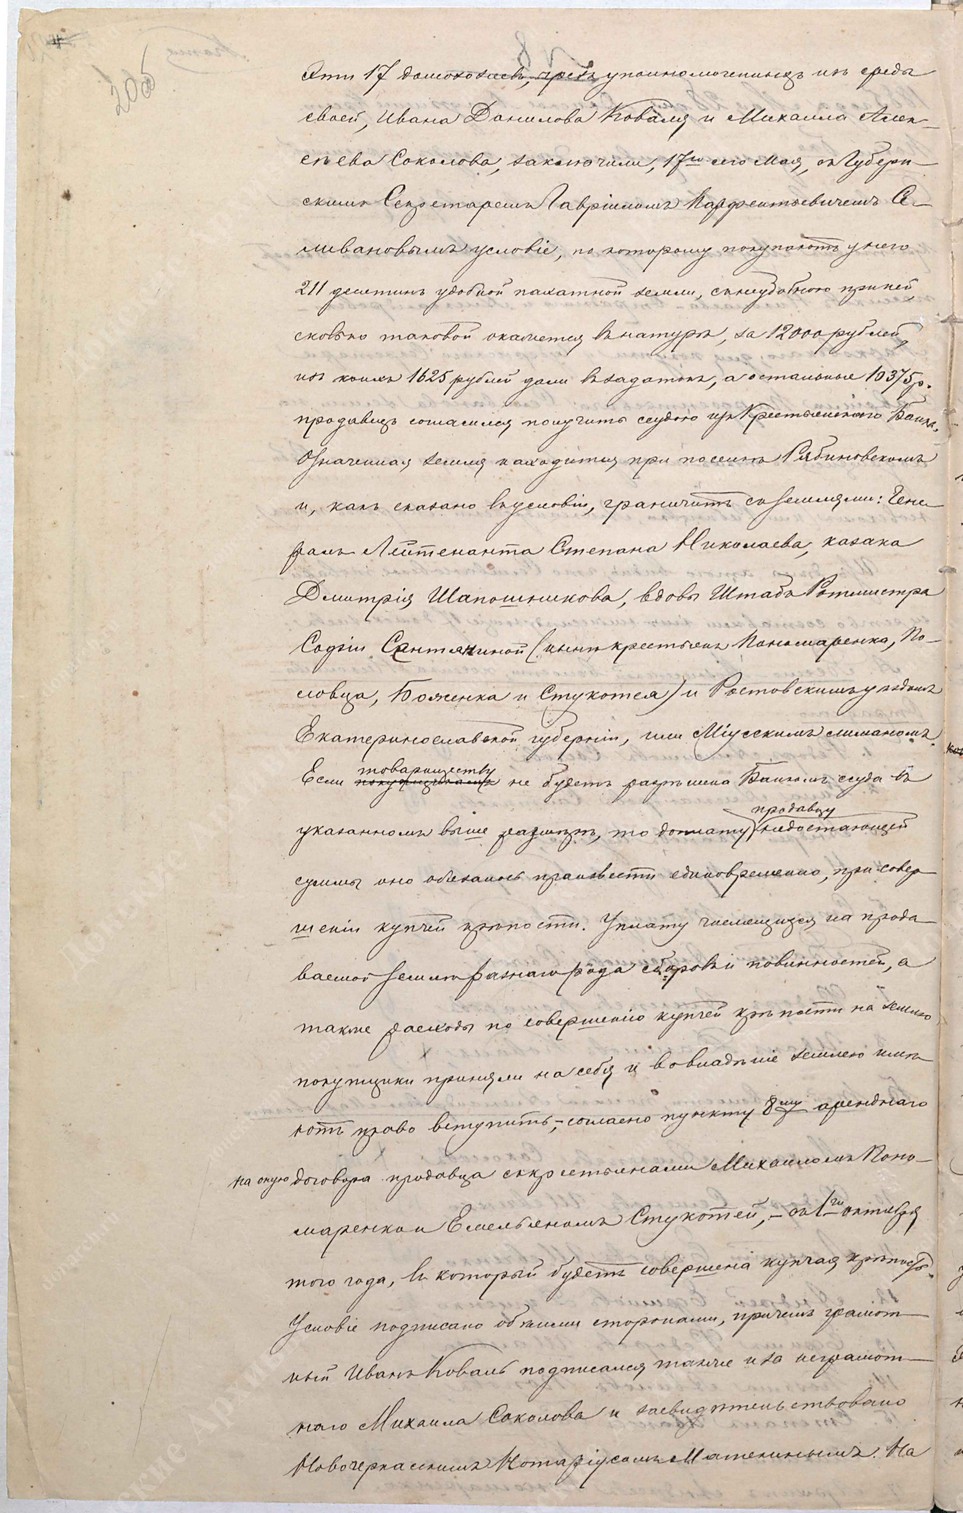 20об
Эти 17 домохозяевъ, чрезъ уполномоченныхъ изъ среды
своей, Ивана Данилова Коваля и Михаила Алек-
сѣева Соколова, заключили, 17го сего Мая, съ Губерн-
скимъ Секретаремъ Гавріиломъ Парфентьевичемъ Се-
ливановымъ условіе, по которому покупаютъ у него
211 десятинъ удобной пахатной земли, съ неудобною при ней,
сколько таковой окажется въ натурѣ, за 12000 рублей,
изъ коихъ 1625 рублей дали въ задатокъ, а остальные 10375 р.
продавецъ согласился получить ссудою изъ Крестьянскаго Банка.
Означенная земля находится при поселкѣ Рябиновскомъ
и, какъ сказано въ условіи, граничитъ съ землями: Гене-
ралъ Лейтенанта Степана Николаева, казака
Дмитрія Шапошникова, вдовы Штабъ Ротмистра
Софіи Сантякиной (нынѣ крестьянъ Пономаренка, По-
ловца, Боженка и Стукотея) и Ростовскимъ уѣздомъ
Екатеринославской губерніи, или Міусскимъ лиманомъ.
товариществу
Если покупщикамъ не будетъ разрѣшена Банкомъ ссуда въ
продавцу
указанномъ выше размѣрѣ, то доплату недостающей
суммы оно обязалось произвести единовременно, при совер-
шеніи купчей крѣпости. Уплату числящихся на прода-
ваемой землѣ разнаго рода сборовъ и повинностей, а
также расходы по совершенію купчей крѣпости на землю
покупщики приняли на себя и во владѣніе землею имѣ-
ютъ право вступить, – согласно пункту 8му аренднаго
на оную договора продавца съ крестьянами Михаиломъ Поно-
маренко и Емельяномъ Стукотей, – съ 1го октября
того года, въ который будетъ совершена купчая крѣпость.
Условіе подписано обѣими сторонами, причемъ грамот-
ный Иванъ Коваль подписался также и за неграмот-
наго Михаила Соколова и засвидѣтельствовано
Новочеркасскимъ Нотаріусомъ Матекинымъ. На